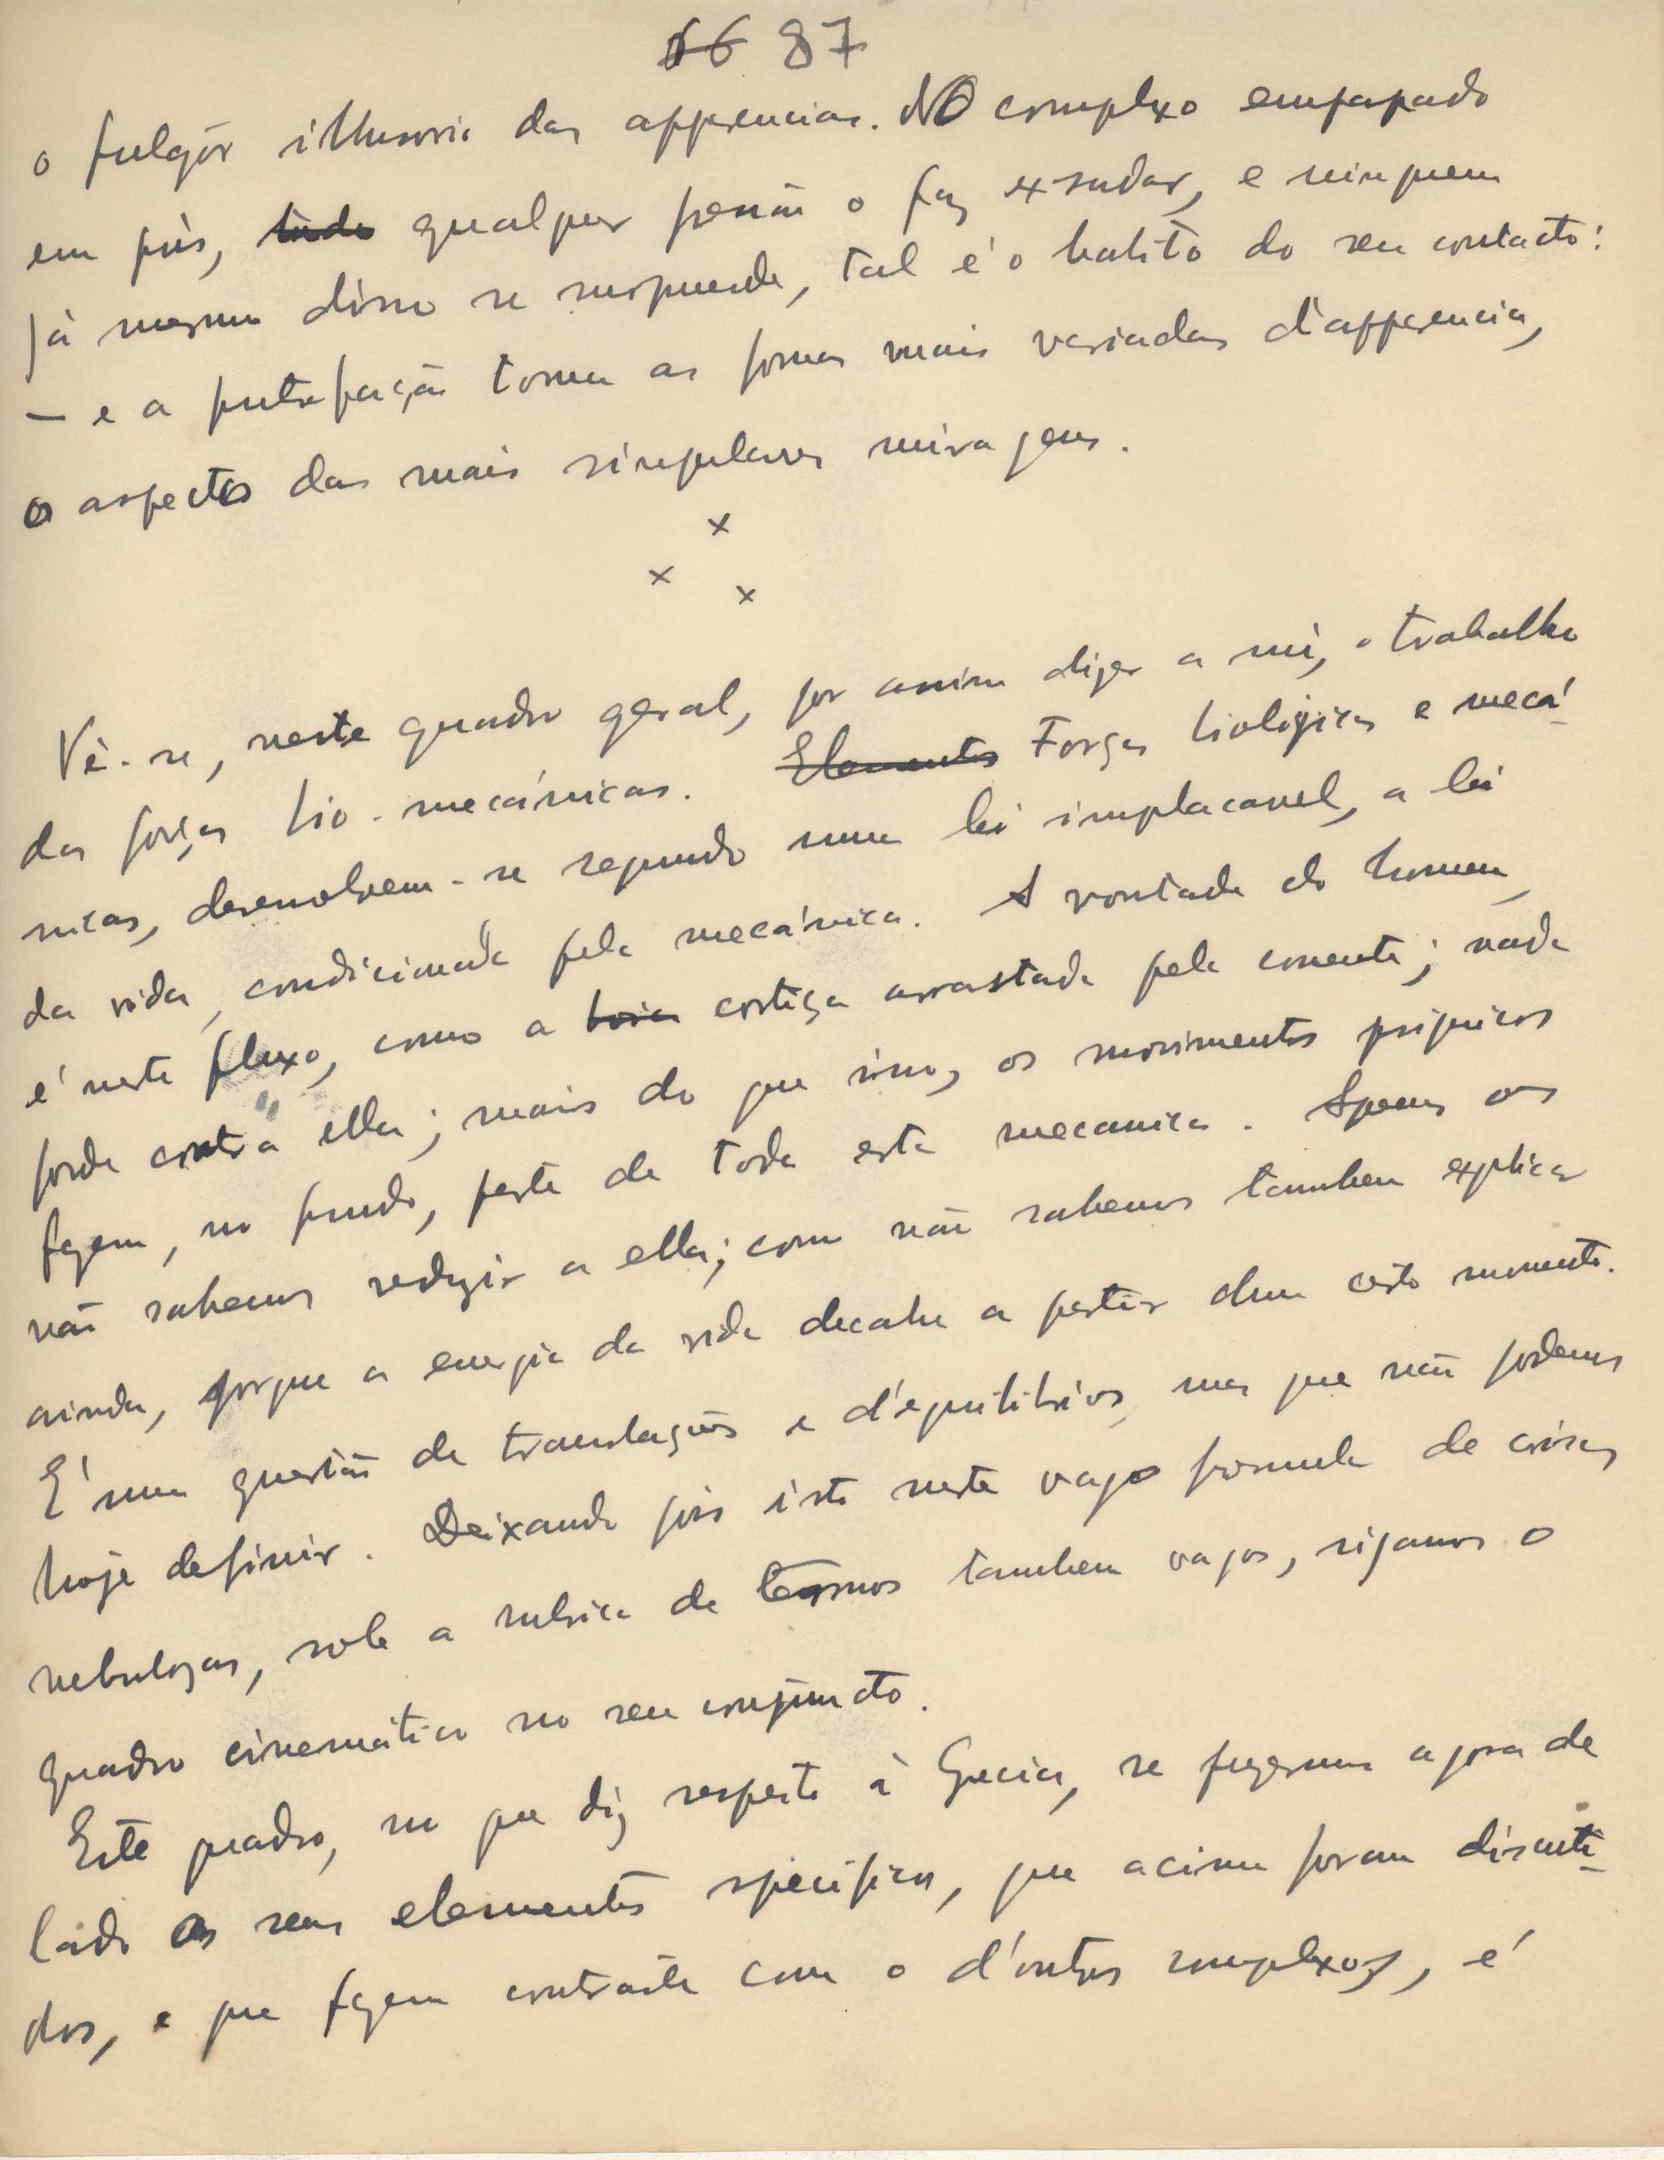 66 87
o fulgôr illusorio das apparencias. O complexo empapado
em pús, tudo qualquer pressão o faz exsudar, e ninguem
já mesmo disso se surprende, tal é o habito do seu contacto:
— e a putrefacção toma as formas mais variadas d'apparencia,
os aspectos das mais singulares miragens.
x
x x
Vê-se, neste quadro geral, por assim dizer a nú, o trabalho
das forças bio-mecánicas. Elementos Forças biológicas e mecá-
nicas, desenvolvem-se segundo uma lei implacavel, a lei
da vida, condicionada pela mecánica. A vontade do homem,
é neste fluxo, como a boia cortiça arrastada pela corrente; nada
pode contra ella; mais do que isso, os movimentos psiquicos
fazem, no fundo, parte de toda esta mecanica. Apenas os
não sabemos reduzir a ella; como não sabemos tambem explicar
ainda, porque a energia da vida decahe a partir dum certo momento.
É uma questão de translações e d'equilibrios, mas que não podemos
hoje definir. Deixando pois isto nesta vaga formula de coisas
nebulozas, sob a rubrica de termos tambem vagos, sigamos o
quadro cinemático no seu conjuncto.
Este quadro, no que diz respeito á Grecia, se fizermos agora de
lado os seus elementos specificos, que acima foram discuti-
dos, e que fazem contraste com o d'outros complexos, é